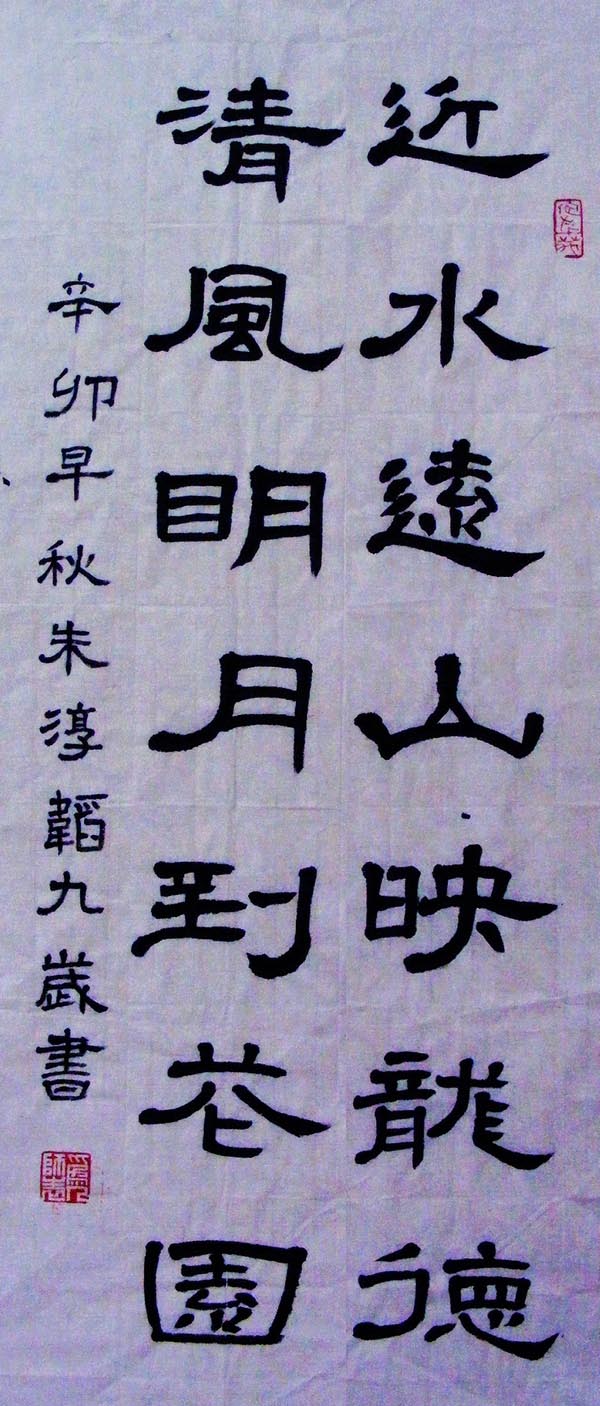 近水遠山映龍德
清風明月到花園
辛卯早秋朱淳韜九歲書